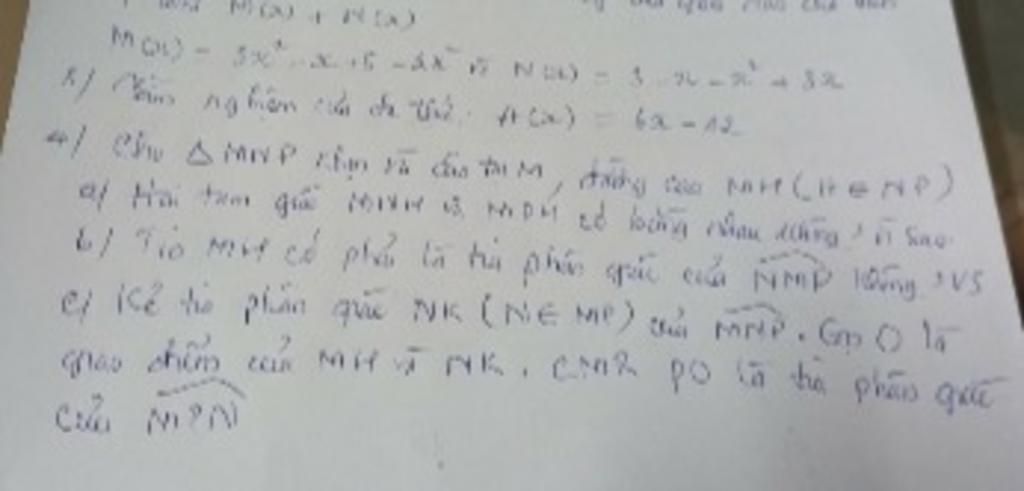 M(x) + N(x)
M(x) = 3x² - x + 5 - 2x² và N(x) = 3 - x - x² + 3x
3/ Tìm nghiệm của đa thức. A(x) = 6x - 12
4/ Cho △ MNP cân tại M, đường cao MH (H ∈ NP)
a/ Hai tam giác MNH và MPH có bằng nhau không? Vì sao
b/ Tia MH có phải là tia phân giác của NMP không? VS
c/ Kẻ tia phân giác NK (N ∈ MP) của MNP. Gọi O là
giao điểm của MH và NK. CMR PO là tia phân giác
của MPN